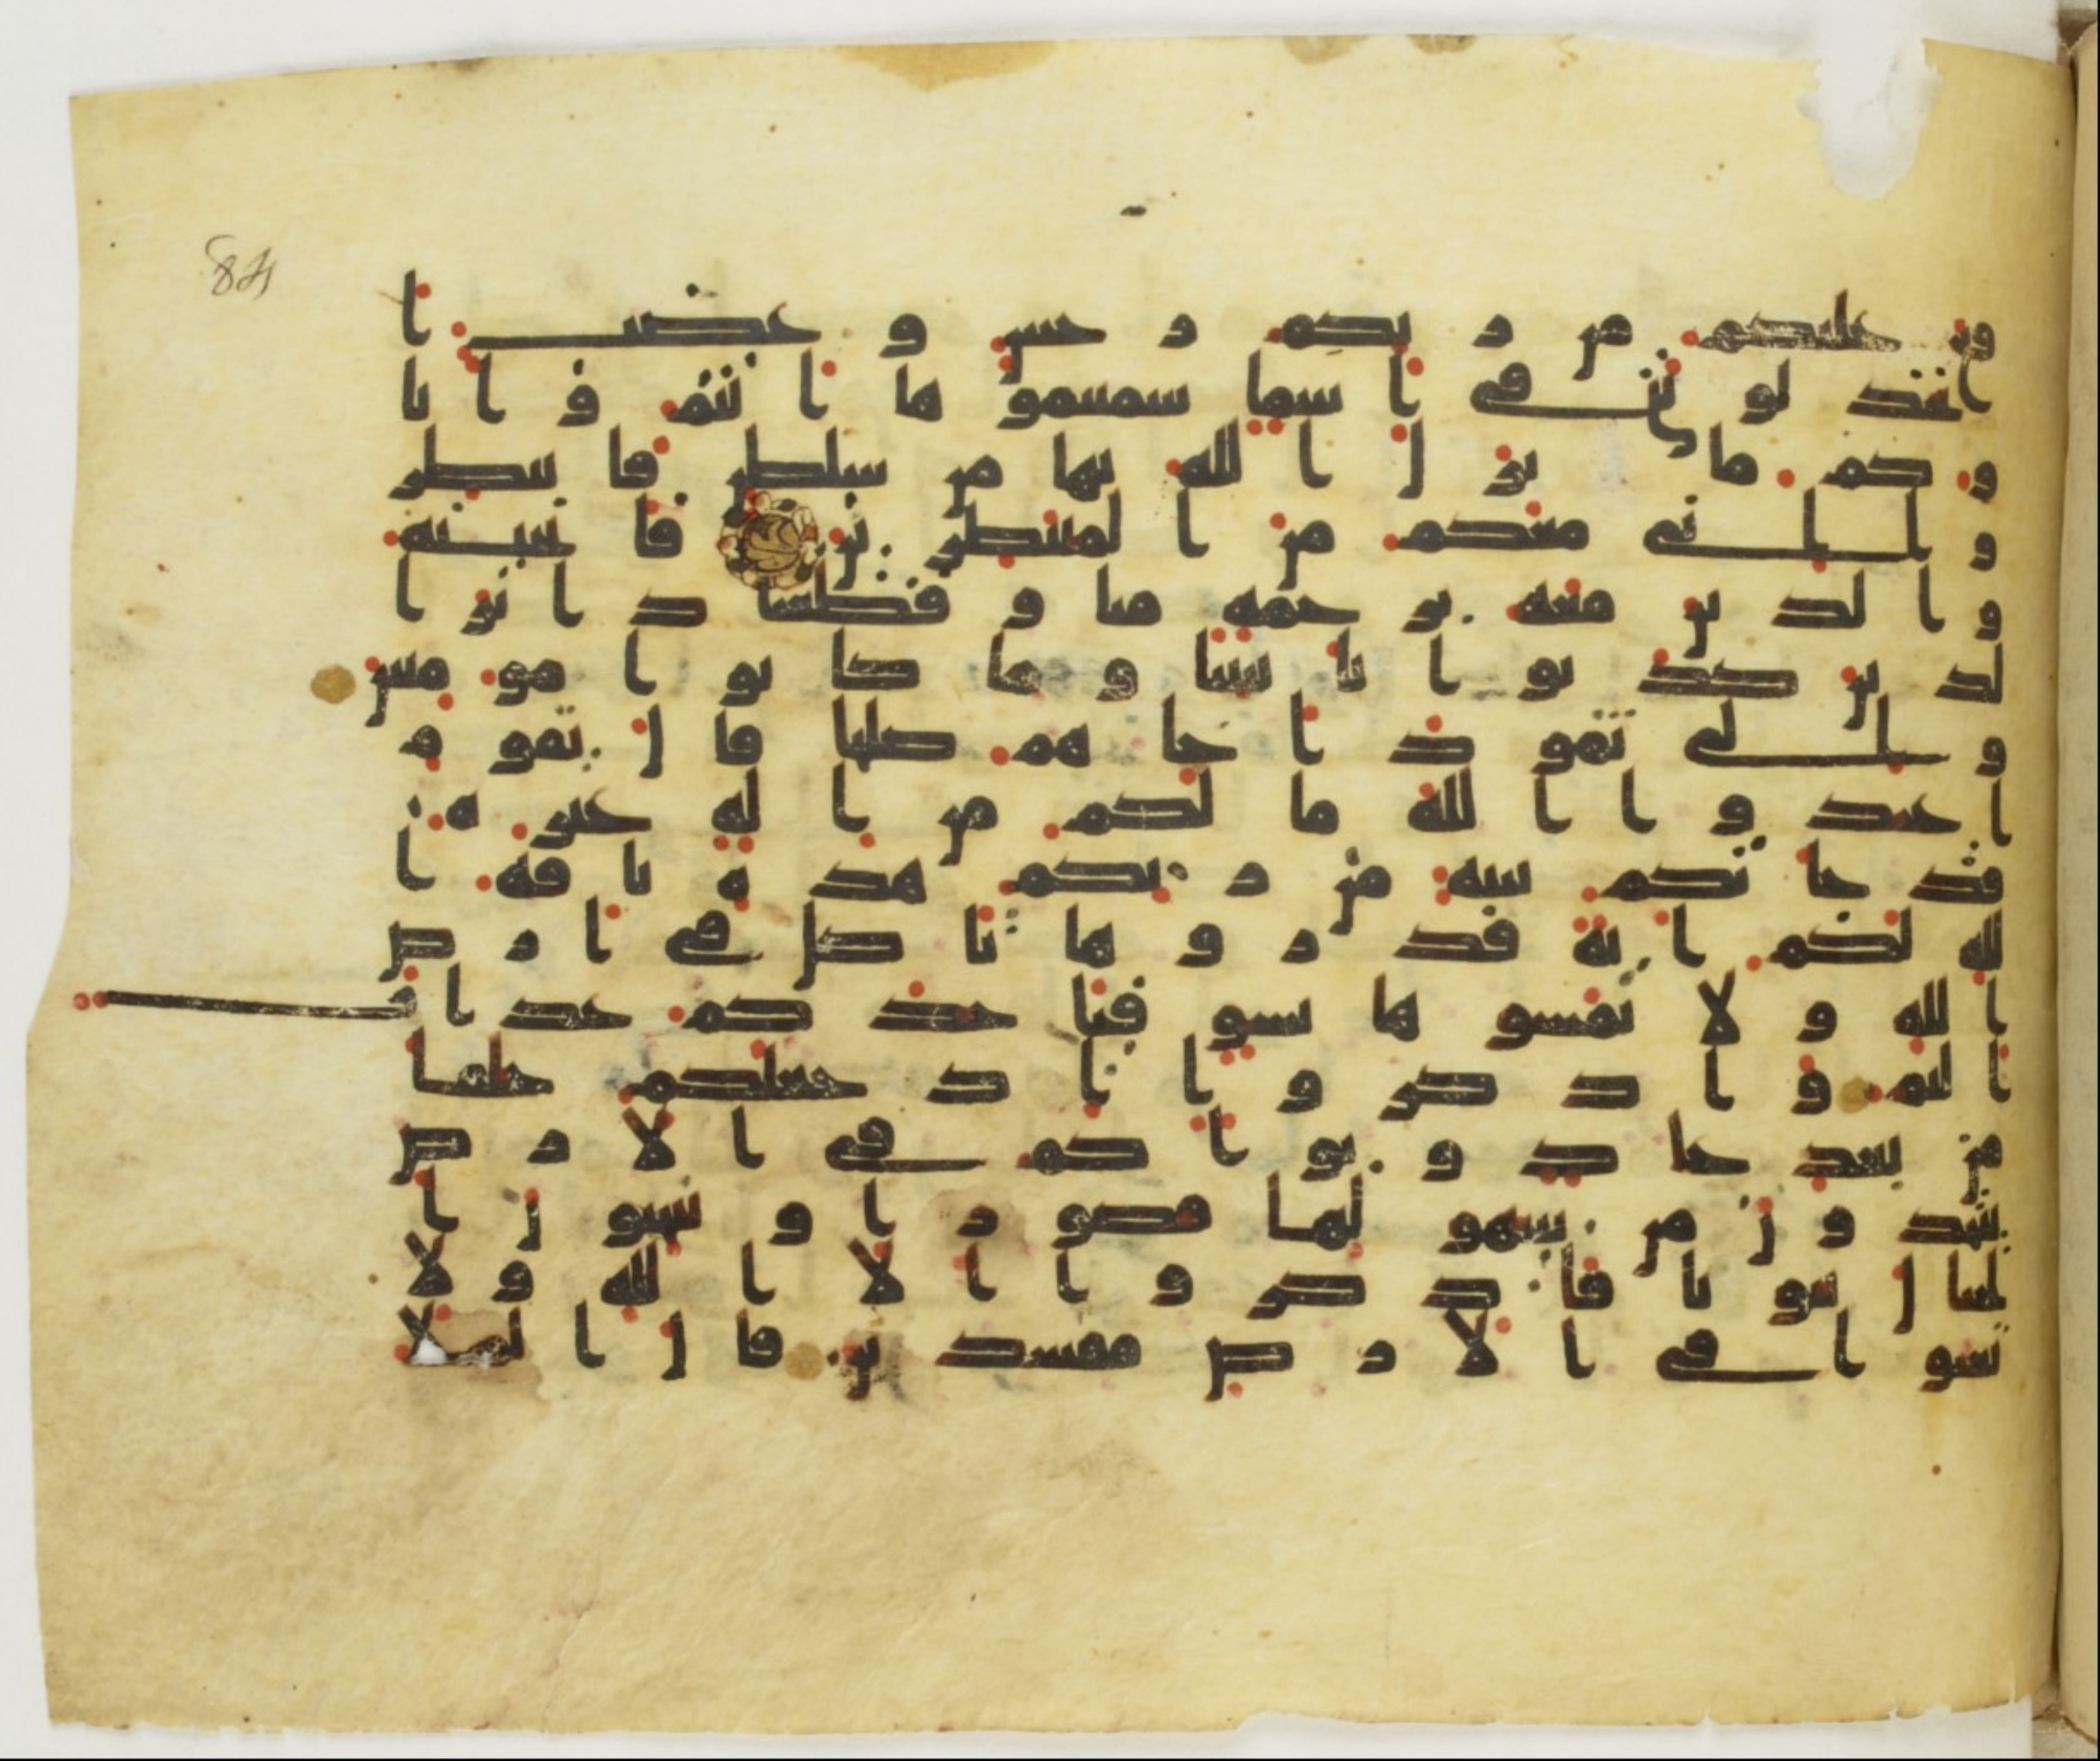 84
قع عليكم من ربكم رجس وغضب ا
تجدلونني في اسما سميتموها انتم وابا
وكم ما نزل الله بها من سلطن فانتظر
وا اني معكم من المنتظرين فانجينه
والذين معه برحمة منا وقطعنا دابر ا
لذين كذبوا بايتنا وما كانوا مومنين
والى ثمود اخاهم صلحا قال يقوم
اعبدوا الله ما لكم من اله غيره
قد جاتكم بينة من ربكم هذه ناقة ا
لله لكم اية فذروها تاكل في ارض
الله ولا تمسوها بسو فياخذكم عذاب
اليم واذكروا اذ جعلكم خلفا
من بعد عاد وبواكم في الارض
تتخذون من سهولها قصورا وتنحتون ا
لجبال بيوتا فاذكروا الا الله ولا
تعثوا في الارض مفسدين قال الملا